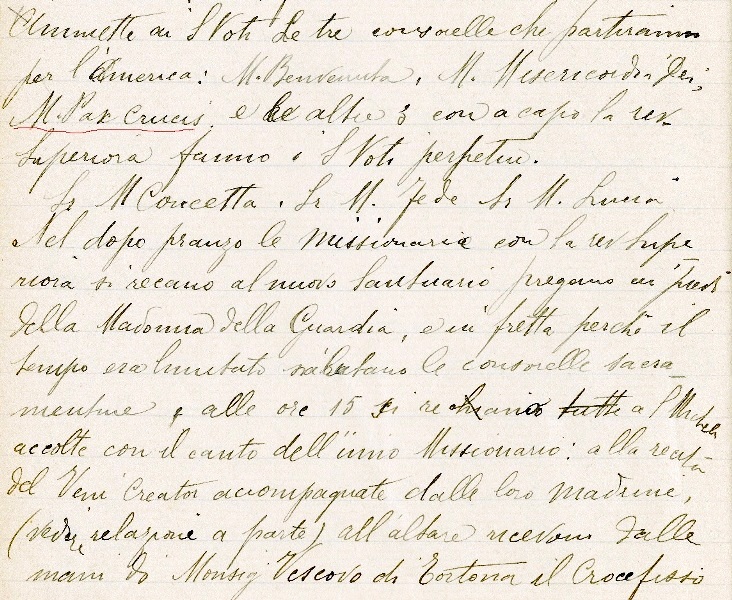 Ammette ai S Voti Le tre consorelle che partiranno
per l'America: M. Benvenuta, M. Misericordia Dei,
M. Pax Crucis, e le altre 3 con a capo la rev.
Superiora fanno i S Voti perpetui.
Sr M Concetta. Sr M. Fede Sr M. Lucia
Nel dopo pranzo le Missionarie con la rev Supe
riora si recano al nuovo Santuario pregano ai piedi
della Madonna della Guardia, e in fretta perchè il
tempo era limitato salutano le consorelle sacra-
mentine, alle ore 15 si recano tutte a S Michele
accolte con il canto dell'inno Missionario: alla recita
del Veni Creator accompagnate dalle loro madrine,
(vedi relazione a parte) all'altare ricevono dalle
mani di Monsig Vescovo di Tortona il Crocefisso